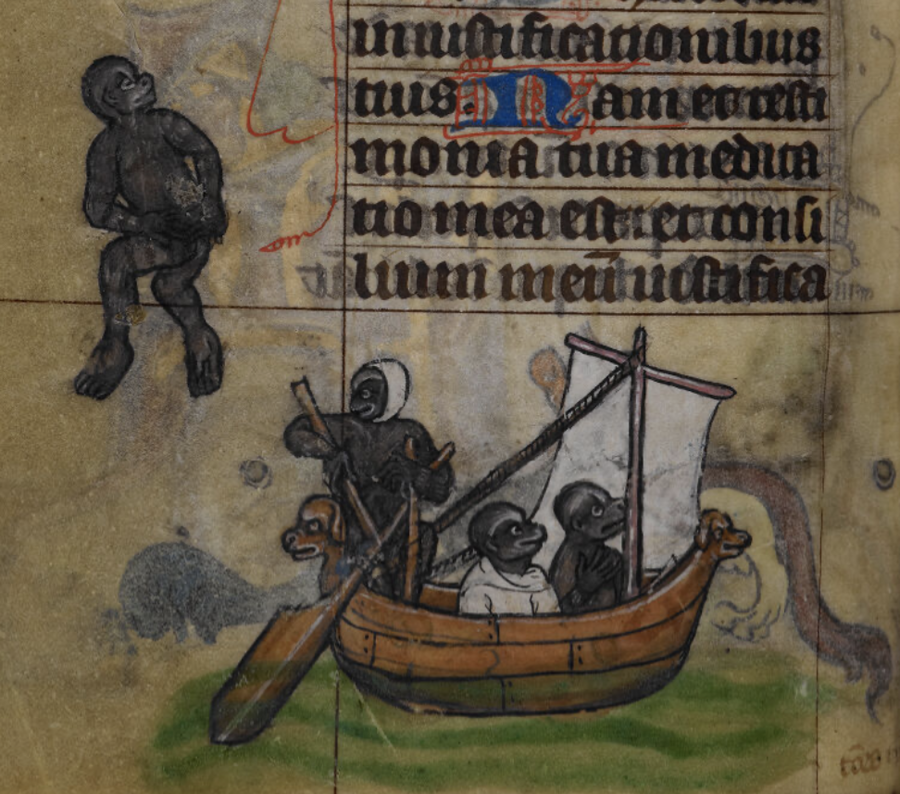 in iustificationibus
tuis. Nam et testi
monia tua medita
tio mea est: et consi
lium meū iustifica